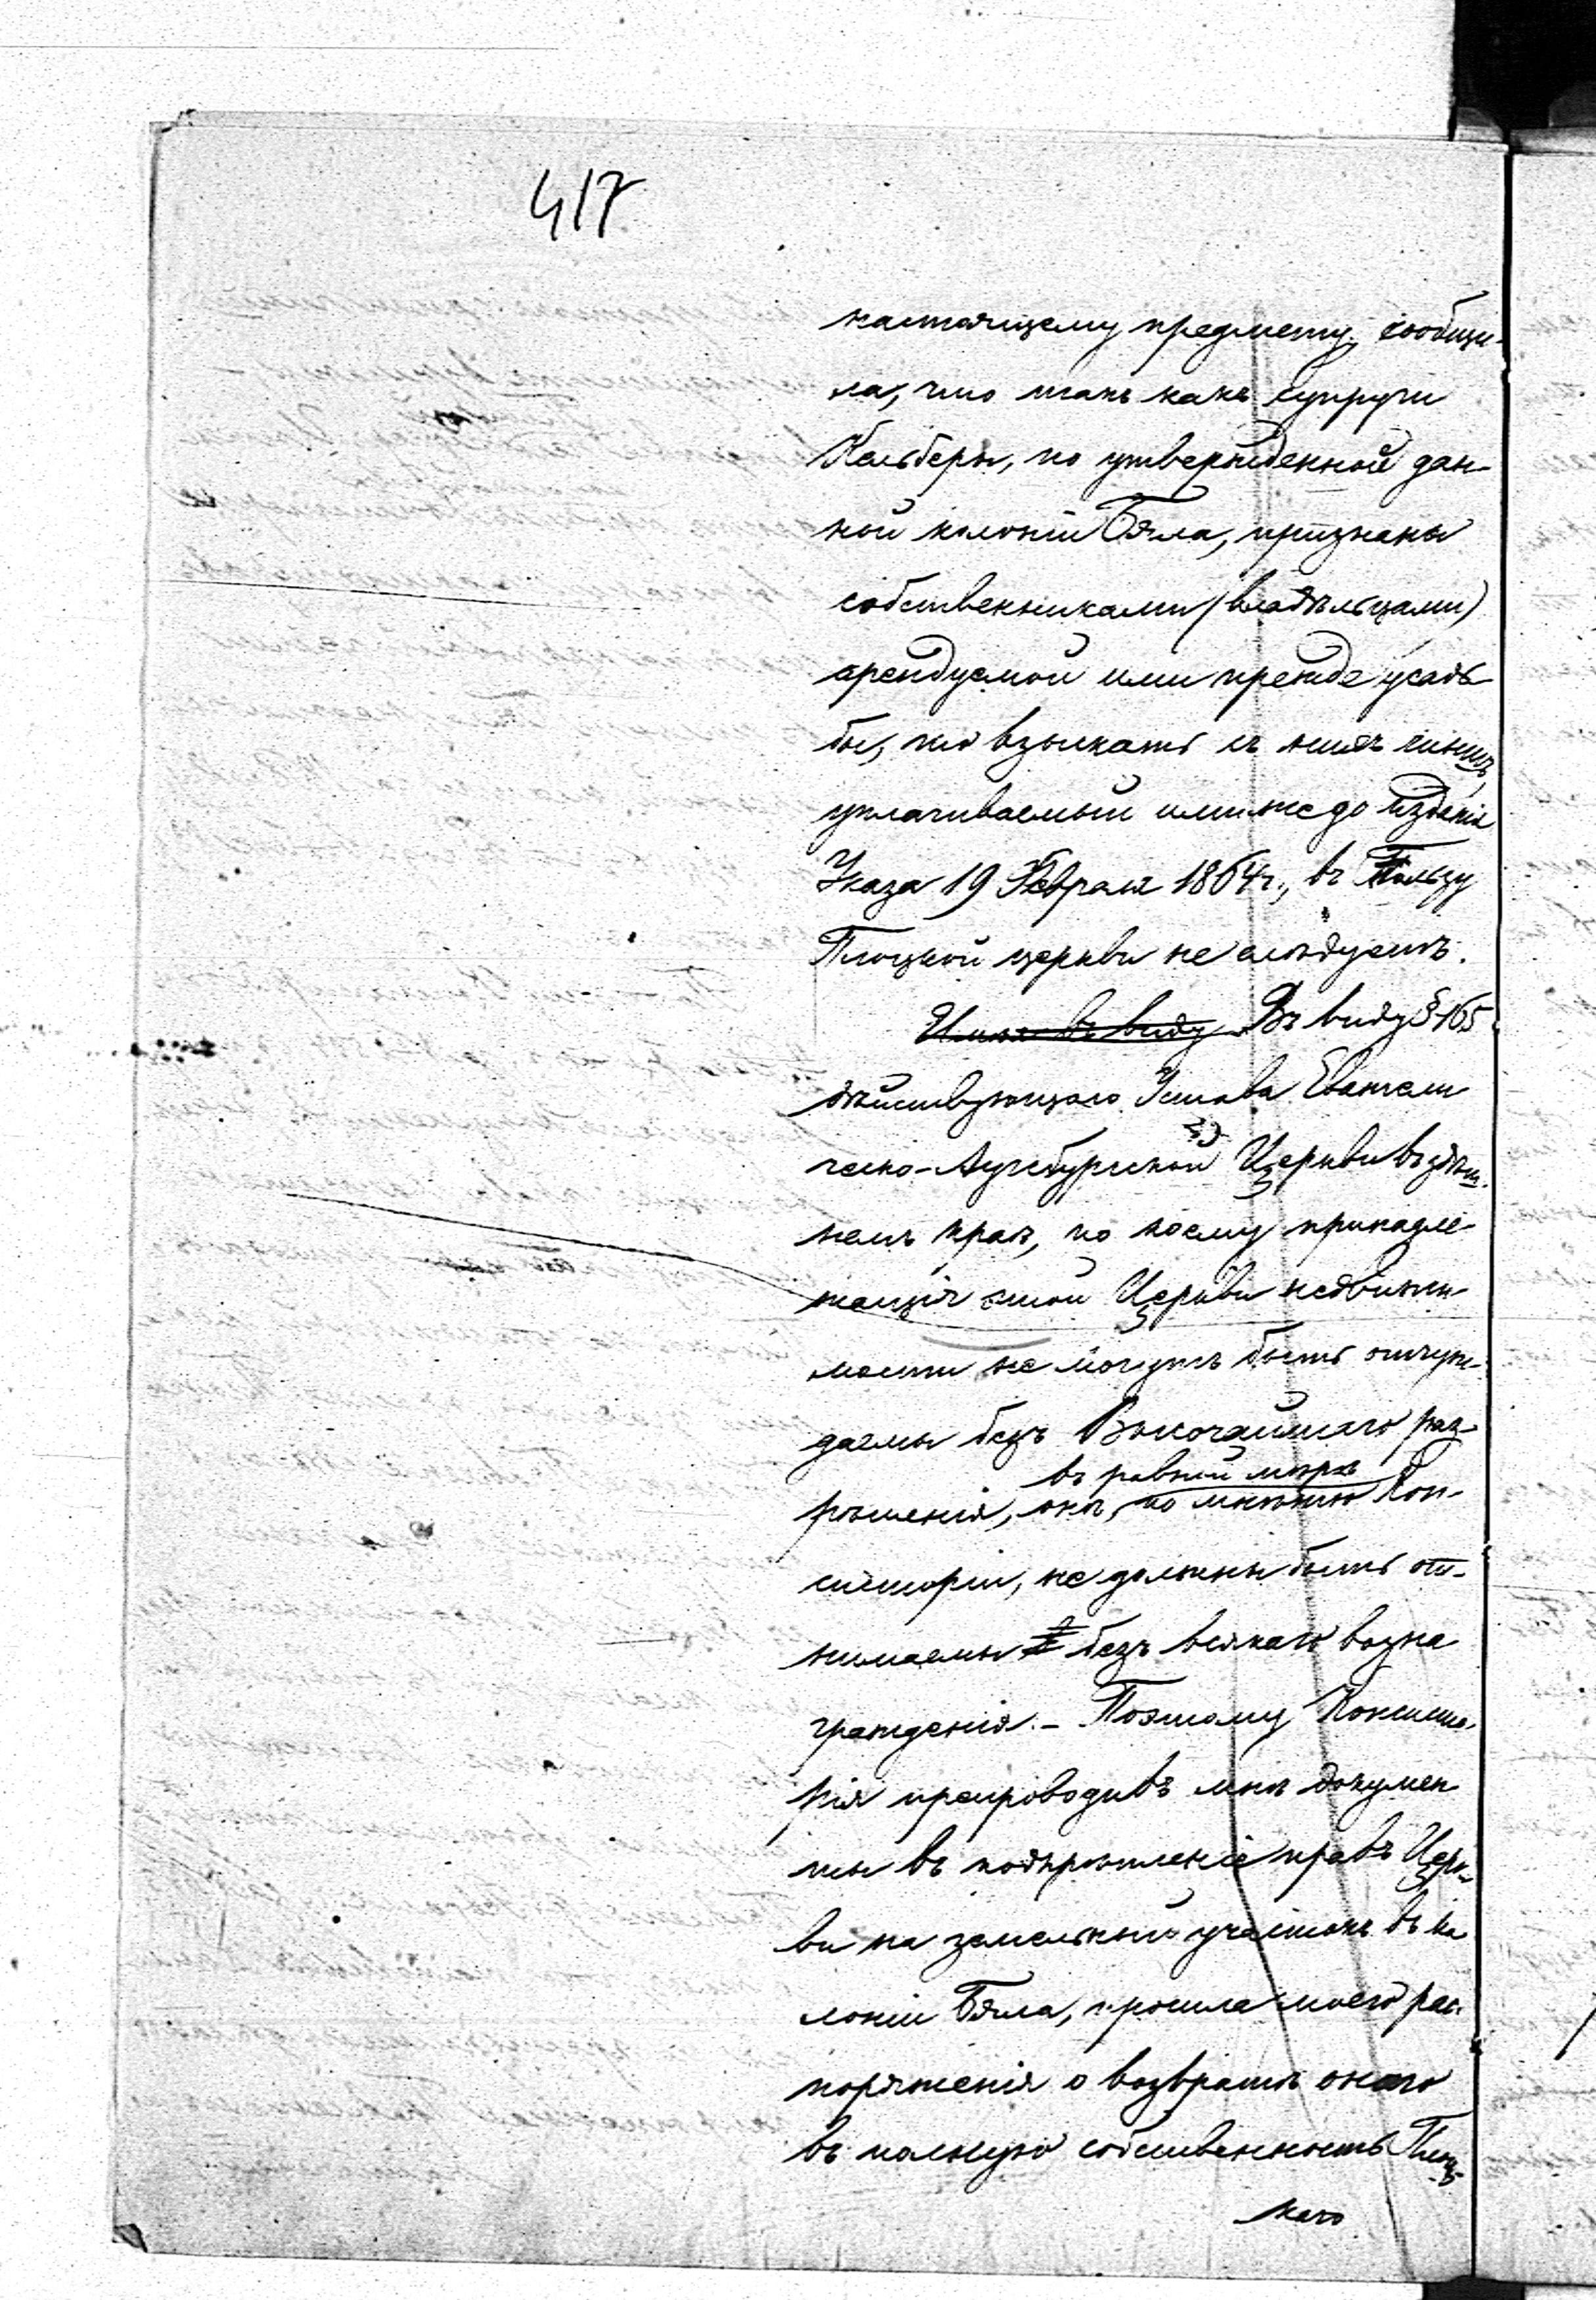 417
настоящему предмету, сообщи-
ла, что такъ какъ супруги
Кельберы, по утвержденной дан-
ной колоніи Бяла, признаны
собственниками (владѣльцами)
арендуемой ими прежде усадь-
бы, то взыскать съ нихъ чиншъ,
уплачиваемый ими же до изданія
Указа 19 Февраля 1864 г., въ Пользу
Плоцкой церкви не слѣдуетъ.
Имѣя въ виду Въ виду § 165
дѣйствующаго Устава Евангели
ческо-Аугсбургской Церкви въ здѣш-
немъ краѣ, по коему принадле-
жащія этой Церкви недвижи-
мости не могутъ быть отчуж-
даемы безъ Высочайшаго раз-
въ равной мѣрѣ
рѣшенія, онѣ, по мнѣнію Кон-
систоріи, не должны быть от-
нимаемы безъ всякаго возна
гражденія. - Поэтому Консисто-
рія препроводивъ мнѣ докумен
ты въ подкрѣпленіе правъ Церк-
ви на земельный участокъ въ ко
лоніи Бяла, просила моего рас-
поряженія о возвратѣ онаго
въ полную собственность Плоц-
каго